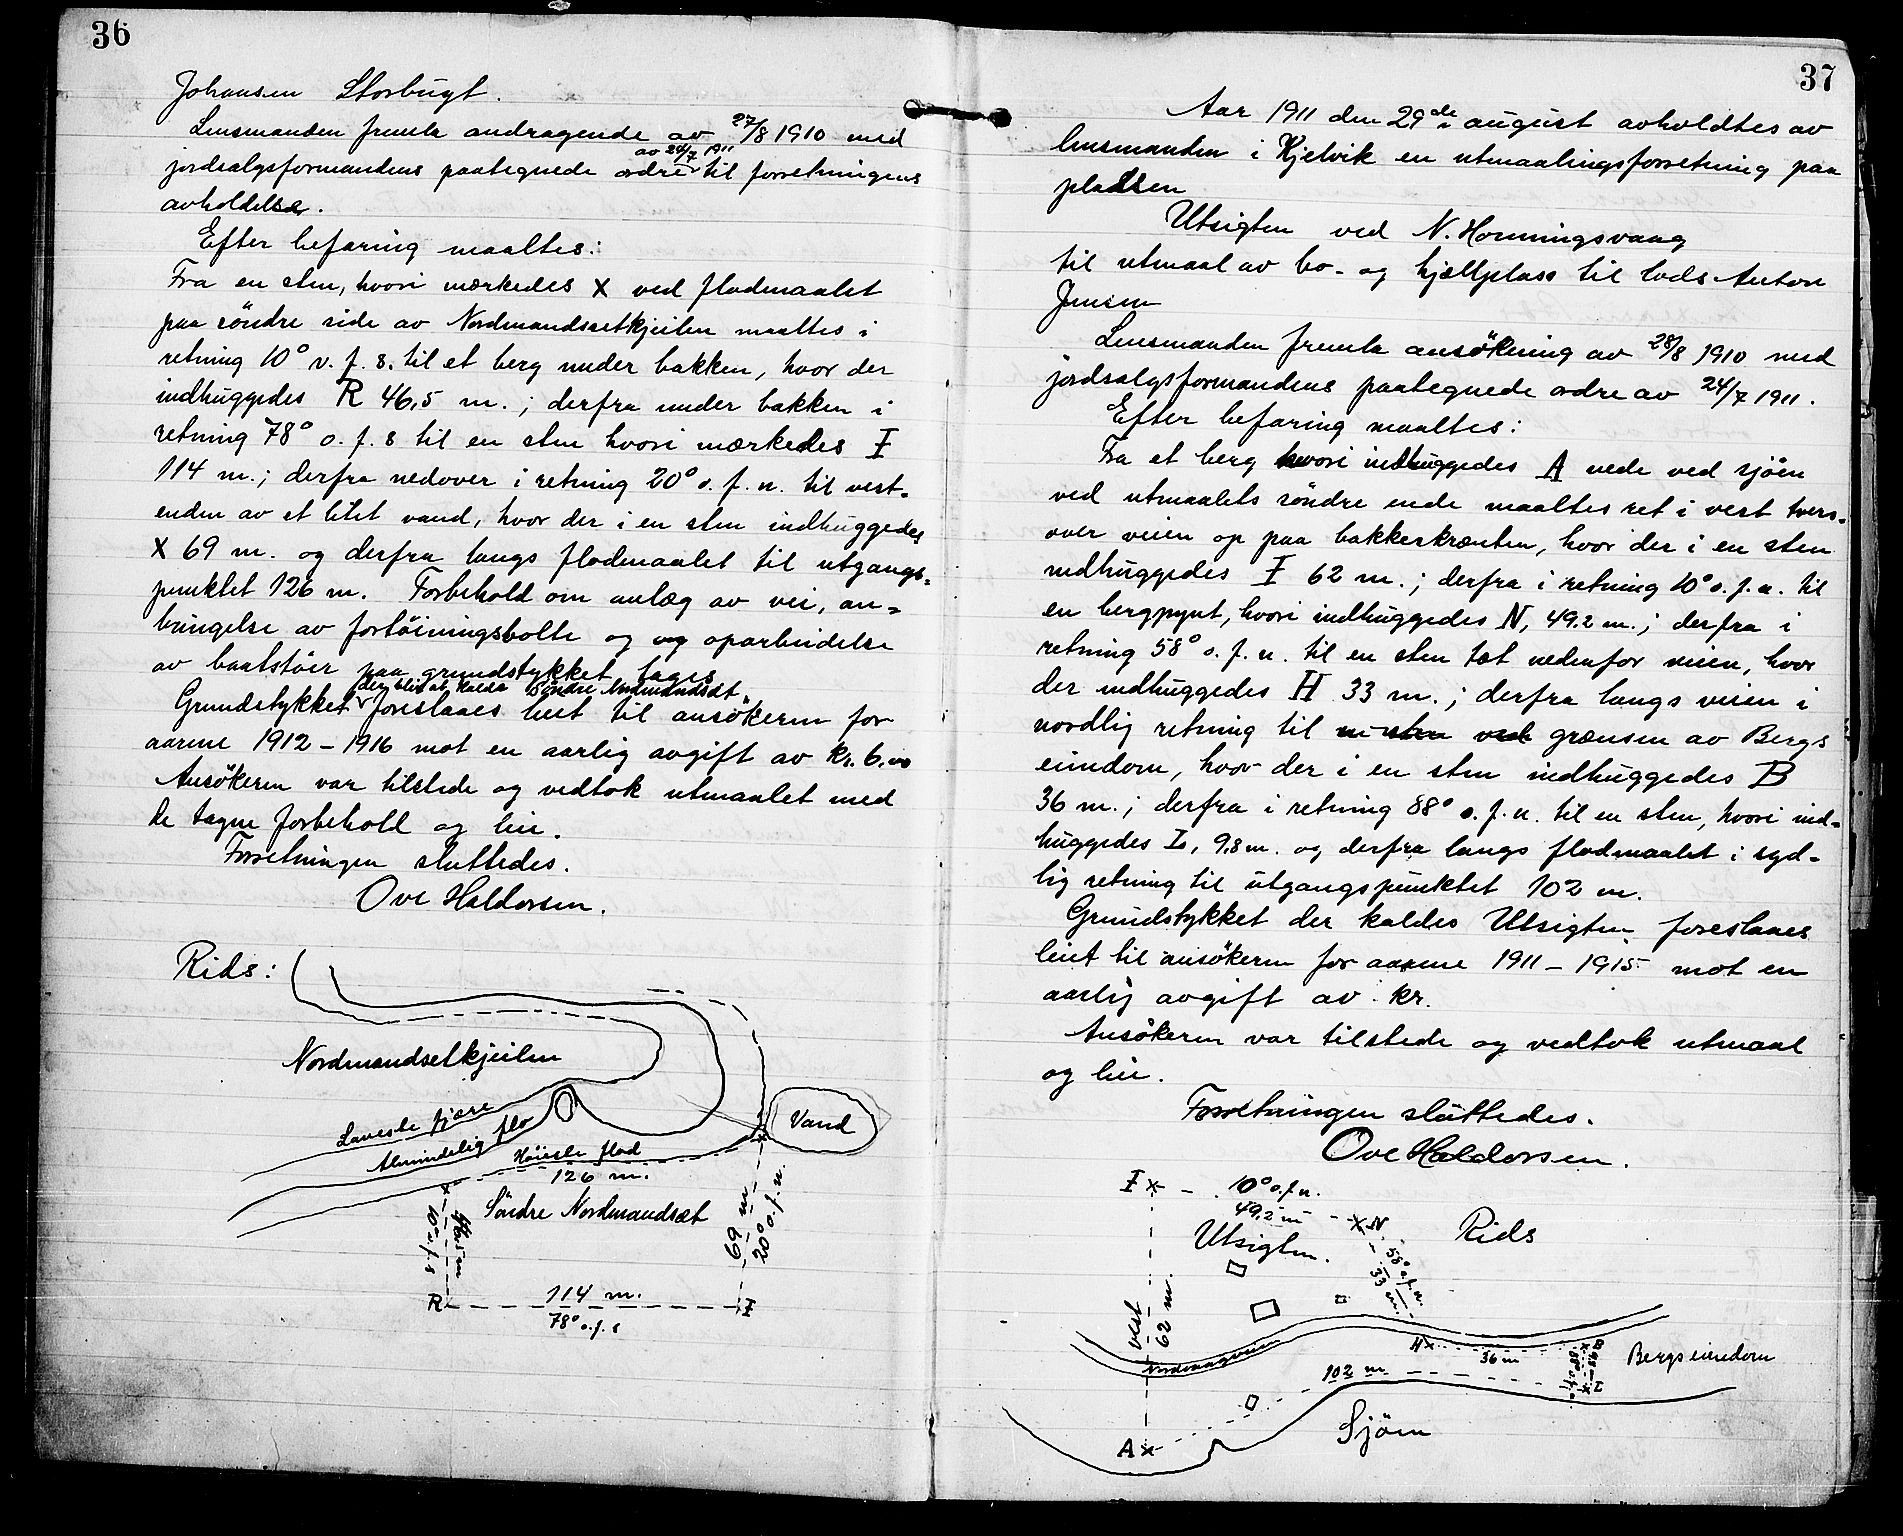 36
Johansen Storbugt.
Lensmanden fremla andragende av 27/8 1910 med
av 24/7 1911
jordsalgsformandens paategnede ordre til forretningens
avholdelse.
Efter befaring maaltes:
Fra en sten, hvori mærkedes X ved flodmaalet
paa söndre side av Nordmandssetkjeilen maaltes i
retning 10° v. f. s. til et berg under bakken, hvor der
indhuggedes R 46,5 m. ; derfra under bakken i
retning 78° o. f. s til en sten hvori mærkedes I
114 m.; derfra nedover i retning 20° o. f. n. til vest-
enden av et litet vand, hvor der i en sten indhuggedes
X 69 m. og derfra langs flodmaalet til utgangs-
punktet 126 m. Forbehold om anlæg av vei, an-
bringelse av fortöiningsbolte og oparbeidelse
av baatstöer paa grundstykket tages
der blir at kalde Söndre Nordmandsæt.
Grundstykket foreslaaes leiet til ansökeren for
aarene 1912 - 1916 mot en aarlig avgift av kr. 6,00
Ansökeren var tilstede og vedtok utmaalet med
de tagne forbehold og leie.
Forretningen sluttedes.
Ove Haldorsen.
Rids:
Nordmandsetkjeilen
Laveste fjære
Almindelig flo
Höieste flod
126 m.
Vand
Söndre Nordmandsæt
46,5 m
10° v. f. s
69 m
20° o. f. n.
R
114 m.
I
78° o. f. s
37
Aar 1911 den 29de august avholdtes av
lensmanden i Kjelvik en utmaalingsforretning paa
pladsen
Utsigten ved N. Honningsvaag
til utmaal av bo- og hjellplass til lods Anton
Jensen
Lensmanden fremla ansökning av 28/8 1910 med
jordsalgsformandens paategnede ordre av 24/7 1911.
Efter befaring maaltes:
Fra et berg hvori indhuggedes A nede ved sjöen
ved utmaalets söndre ende maaltes ret i vest tvers-
over veien op paa bakkeskrænten, hvor der i en sten
indhuggedes I 62 m. ; derfra i retning 10° o. f. n. til
en bergpynt, hvori indhuggedes N, 49.2 m. ; derfra i
retning 58° o. f. n. til en sten tæt nedenfor veien, hvor
der indhuggedes H 33 m. ; derfra langs veien i
nordlig retning til en sten ved grænsen av Bergs
eiendom, hvor der i en sten indhuggedes B
36 m. ; derfra i retning 88° o. f. n. til en sten, hvori ind-
huggedes L, 9,8 m. og derfra langs flodmaalet i syd-
lig retning til utgangspunktet 102 m.
Grundstykket der kaldes Utsigten foreslaaes
leiet til ansökeren for aarene 1911 - 1915 mot en
aarlig avgift av kr.
Ansökeren var tilstede og vedtok utmaal
og leie.
Forretningen sluttedes.
Ove Haldorsen.
I
10° o. f. n.
49,2 m
N
Rids
Utsigten.
58° o. f. n.
33 m.
vest
62 m.
Nordvaagveien
H
36 m
Bergs eiendom
102 m
A
Sjöen